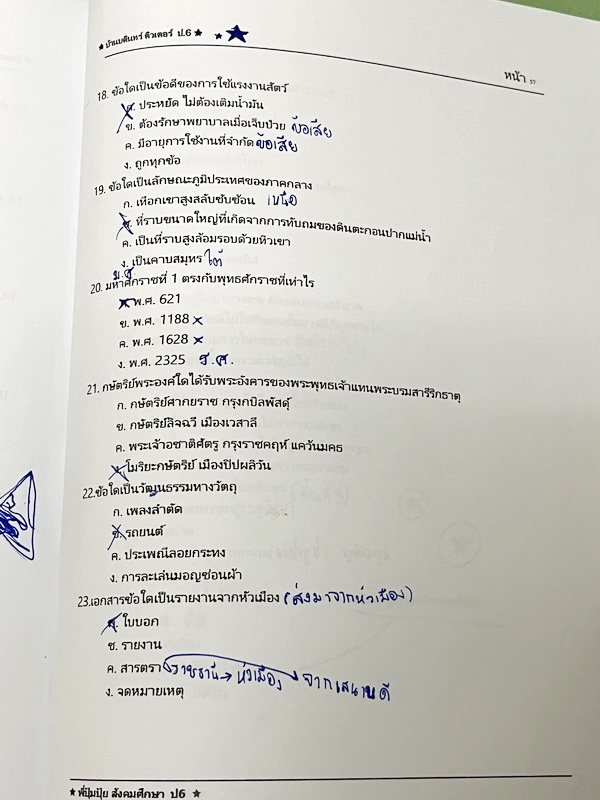 ★ บ้านบดินทร์ ติวเตอร์ ป.6 ★
หน้า 57
18. ข้อใดเป็นข้อดีของการใช้แรงงานสัตว์
ก. ประหยัด ไม่ต้องเติมน้ำมัน
ข. ต้องรักษาพยาบาลเมื่อเจ็บป่วย ข้อเสีย
ค. มีอายุการใช้งานที่จำกัด ข้อเสีย
ง. ถูกทุกข้อ
19. ข้อใดเป็นลักษณะภูมิประเทศของภาคกลาง
ก. เทือกเขาสูงสลับซับซ้อน เหนือ
ข. ที่ราบขนาดใหญ่ที่เกิดจากการทับถมของดินตะกอนปากแม่น้ำ
ค. เป็นที่ราบสูงล้อมรอบด้วยทิวเขา
ง. เป็นคาบสมุทร ใต้
ม.ศ
20. มหาศักราชที่ 1 ตรงกับพุทธศักราชที่เท่าไร
ก. พ.ศ. 621
ข. พ.ศ. 1188 ×
ค. พ.ศ. 1628 ×
ง. พ.ศ. 2325 ร.ศ.
21. กษัตริย์พระองค์ใดได้รับพระอังคารของพระพุทธเจ้าแทนพระบรมสารีริกธาตุ
ก. กษัตริย์ศากยราช กรุงกบิลพัสดุ์
ข. กษัตริย์ลิจฉวี เมืองเวสาลี
ค. พระเจ้าอชาติศัตรู กรุงราชคฤห์ แคว้นมคธ
ง. โมริยะกษัตริย์ เมืองปิปผลิวัน
22.ข้อใดเป็นวัฒนธรรมทางวัตถุ
ก. เพลงลำตัด
ข. รถยนต์
ค. ประเพณีลอยกระทง
ง. การละเล่นมอญซ่อนผ้า
23.เอกสารข้อใดเป็นรายงานจากหัวเมือง (ส่งมาจากหัวเมือง)
ก. ใบบอก
ซ. รายงาน
ค. สารตรา ราชธานี → หัวเมือง จากเสนาบดี
ง. จดหมายเหตุ
★ พี่ปุ๊มปุ้ย สังคมศึกษา ป6 ★